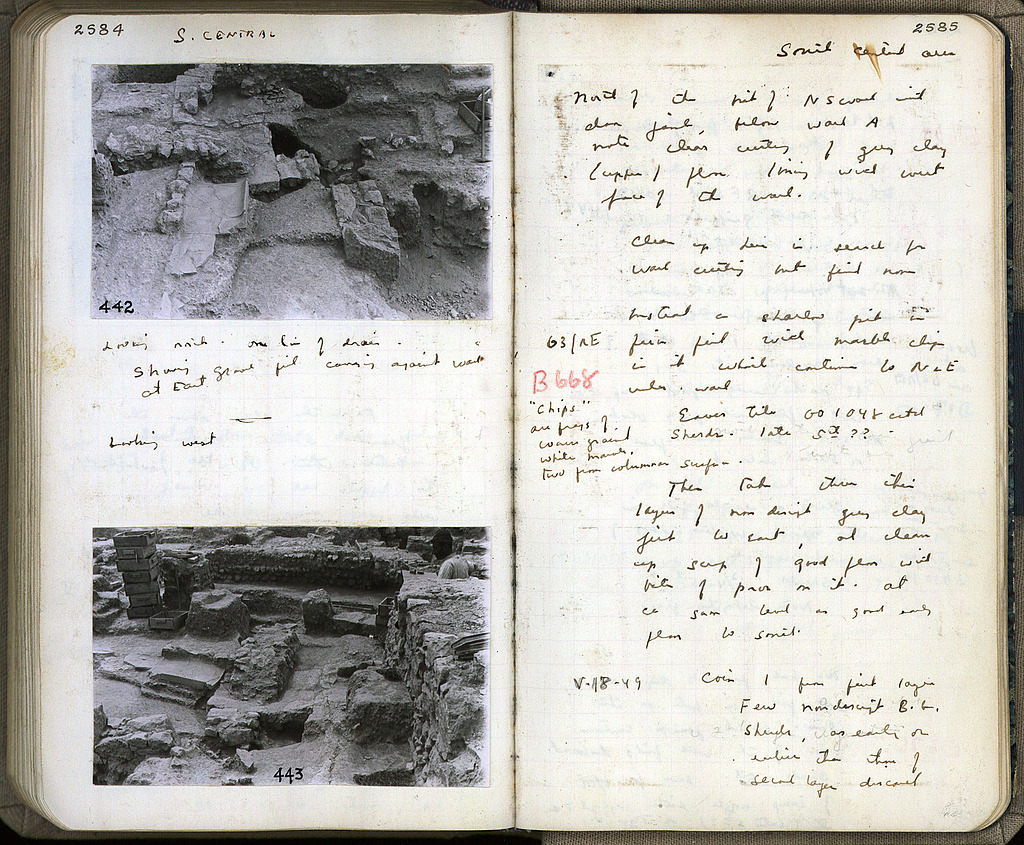 2584
S. CENTRAL
442
Looking north. on line of drain.
Showing
at East gravel fill coming against wall
Looking west
443
2585
South central area
North of the part of NS wall with
clear joint, below wall A
note clear cutting of grey clay
(upper) floor lining west
face of the wall.
Clean up here in search for
wall cutting but find none
Instead a shallow pit in
63/ΠΕ fill with marble chips
in it which continues to N & E
under wall
B 668
"Chips"
are frags of
coarse grained
white marble,
two from columnar surface.
Eaves Tile
Sherds. late 5th ??
Then take thin
layer of nondescript grey clay
just to east, and clean
up scrap of good floor with
bits of poros on it. at
ca same level as good early
floor to south.
V-18-49 Coin 1 from first layer
Few nondescript B.G.
Sherds, as early or
earlier than those of
second layer discard